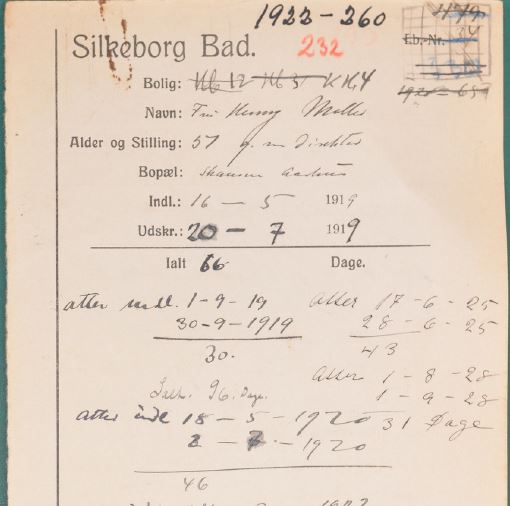 1922-260
Silkeborg Bad.
232
Lb.-Nr.
Bolig: K H, 4
Navn: Fru Henny Møller
Alder og Stilling: 57 g. m Direktør
Bopæl: Aarhus
Indl.: 16 - 5 1919
Udskr.: 20 - 7 1919
Ialt 66 Dage.
atter indl. 1-9-19
30-9-1919
30.
Ialt. 96. Dage.
atter indl 18-5-1920
2-7-1920
46
Atter 17-6-25
28-6-25
43
Atter 1-8-28
1-9-28
31 Dage